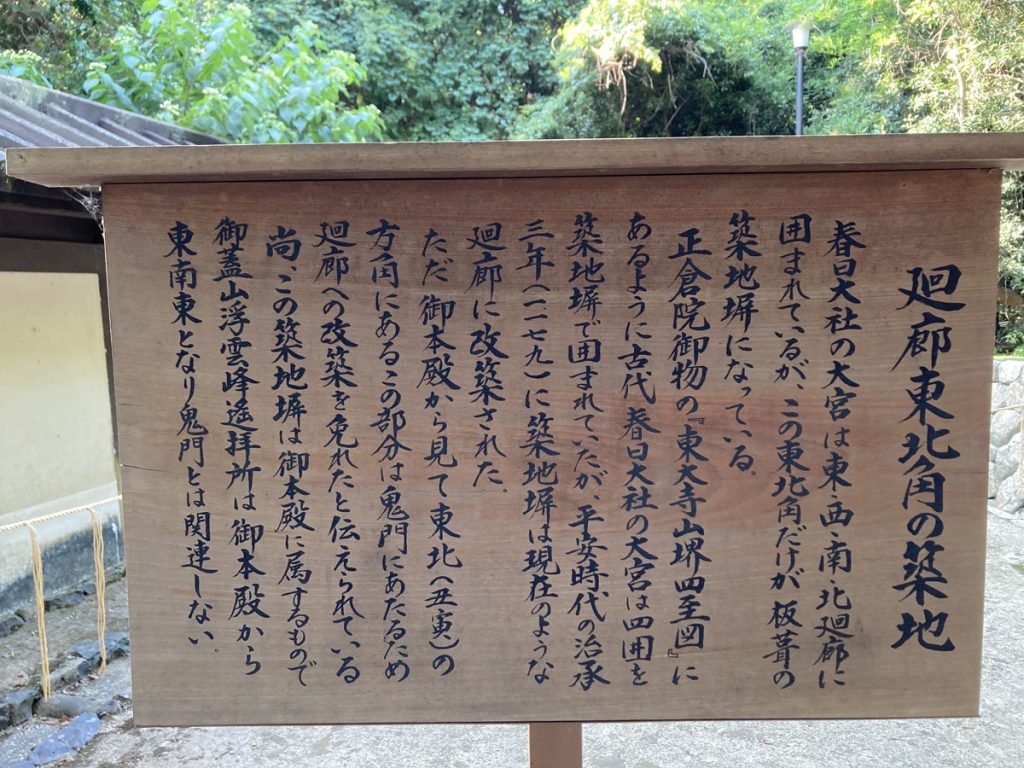 廻廊東北角の築地
春日大社の大宮は東・西・南・北廻廊に
囲まれているが、この東北角だけが板葺の
築地塀になっている。
正倉院御物の『東大寺山堺四至図』に
あるように古代春日大社の大宮は四囲を
築地塀で囲まれていたが、平安時代の治承
三年（一一七九）に築地塀は現在のような
廻廊に改築された。
ただ御本殿から見て東北（丑寅）の
方角にあるこの部分は鬼門にあたるため
廻廊への改築を免れたと伝えられている
尚、この築地塀は御本殿に属するもので
御蓋山浮雲峰遥拝所は御本殿から
東南東となり鬼門とは関連しない。